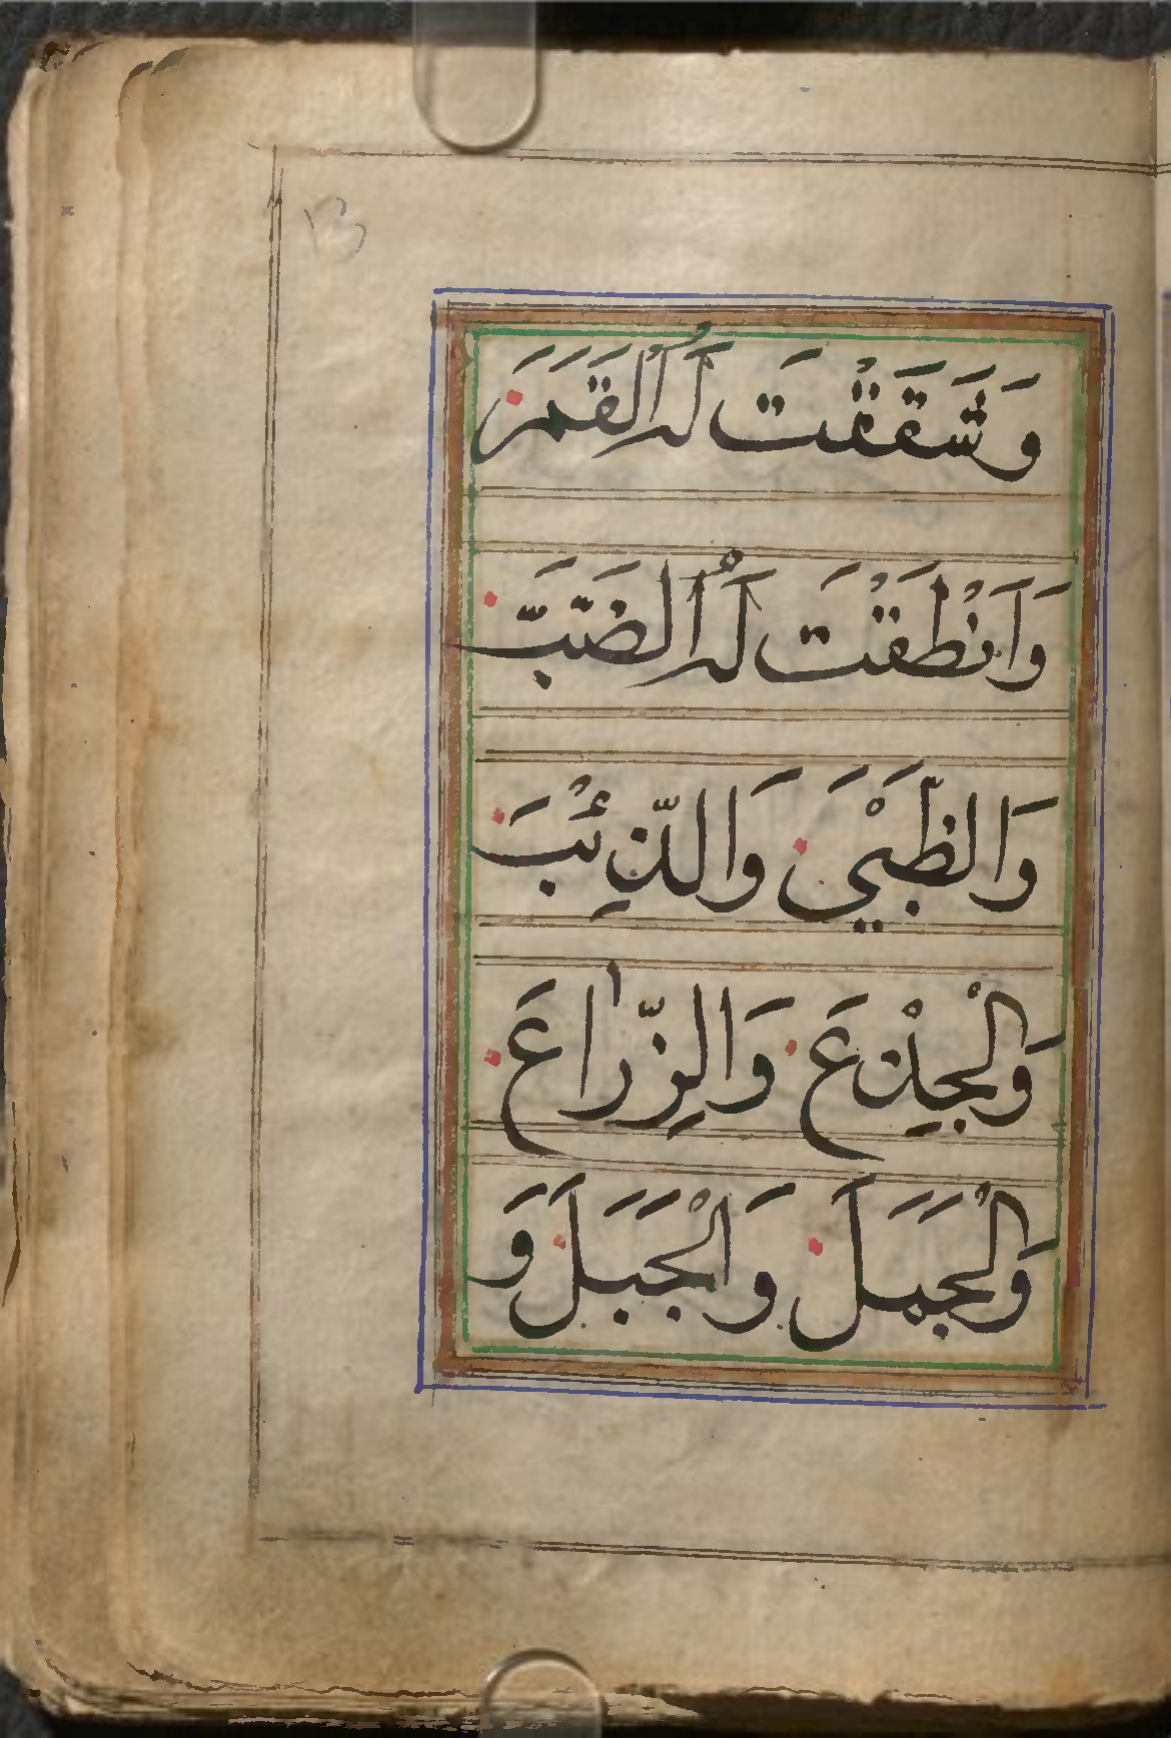 13
وَشَقَقْتَ لَهُ الْقَمَرَ
وَاَنْطَقْتَ لَهُ الضَّبَّ
وَالظَّبْيَ وَالذِّئْبَ
وَالْجِذْعَ وَالذِّرَاعَ
وَالْجَمَلَ وَالْجَبَلَ وَ